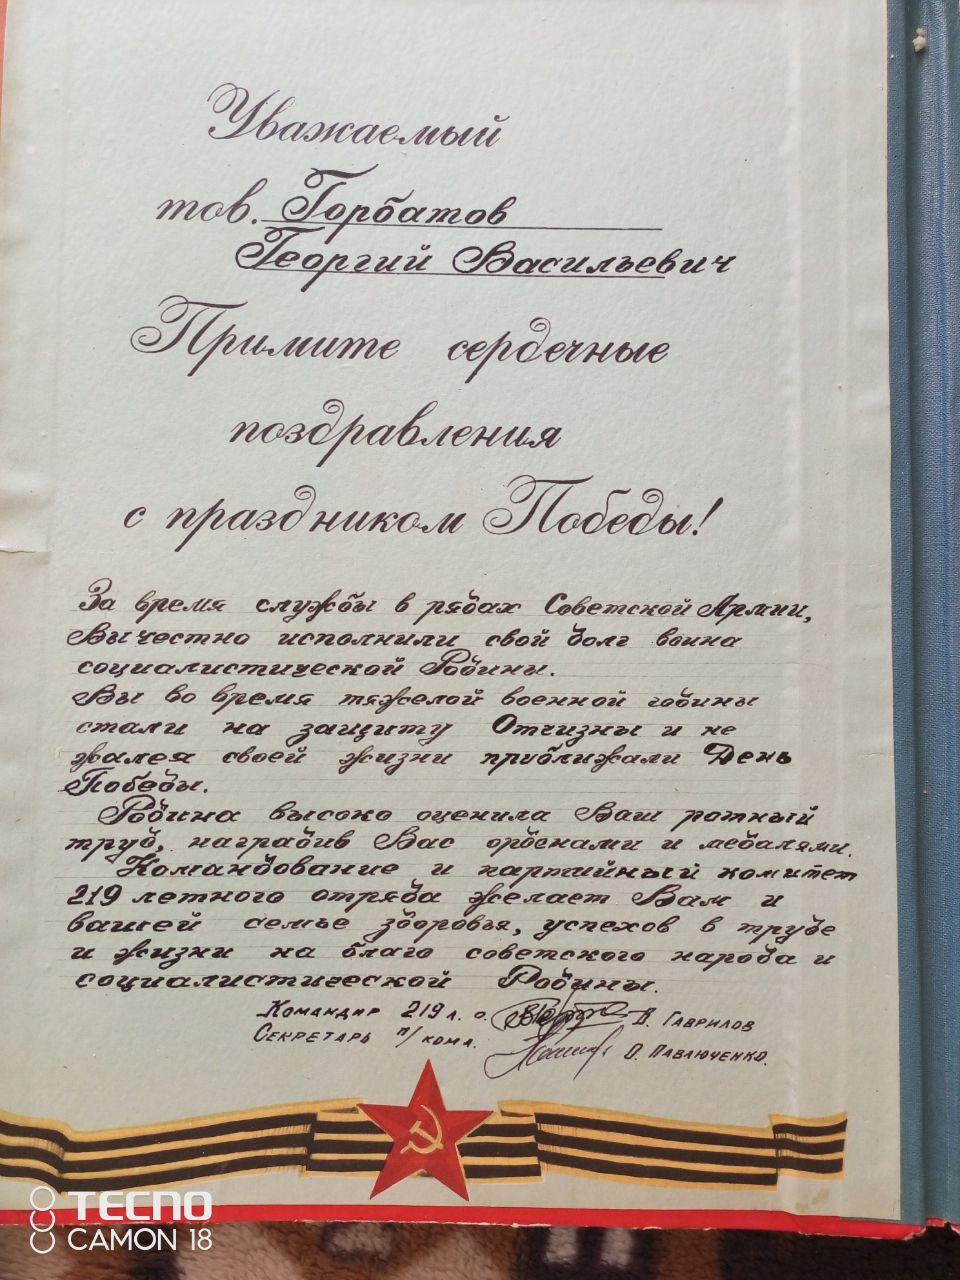 Уважаемый
тов. Горбатов
Георгий Васильевич
Примите сердечные
поздравления
с праздником Победы!
За время службы в рядах Советской Армии,
Вы честно исполнили свой долг воина
социалистической Родины.
Вы во время тяжелой военной годины
стали на защиту Отчизны и не
жалея своей жизни приближали День
Победы.
Родина высоко оценила Ваш ратный
труд, наградив Вас орденами и медалями.
Командование и партийный комитет
219 летного отряда желает Вам и
вашей семье здоровья, успехов в труде
и жизни на благо советского народа и
социалистической Родины.
Командир 219 л. о. В. Гаврилов
Секретарь п/кома. О. Павлюченко.
TECNO
CAMON 18